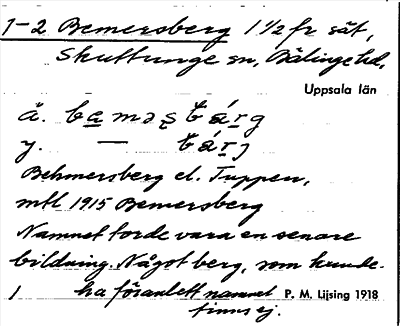 1-2 Bemersberg 1 1/2 fr. sät,
Skuttunge sn, Bälinge hd,
Uppsala län
ä. baməs bárg
y. — bárj
Behmersberg el. Tuppen,
mtl 1915 Bemersberg
Namnet torde vara en senare
bildning. Något berg, som kunde
1 ha föranlett namnet P. M. Lijsing 1918
finns ej.